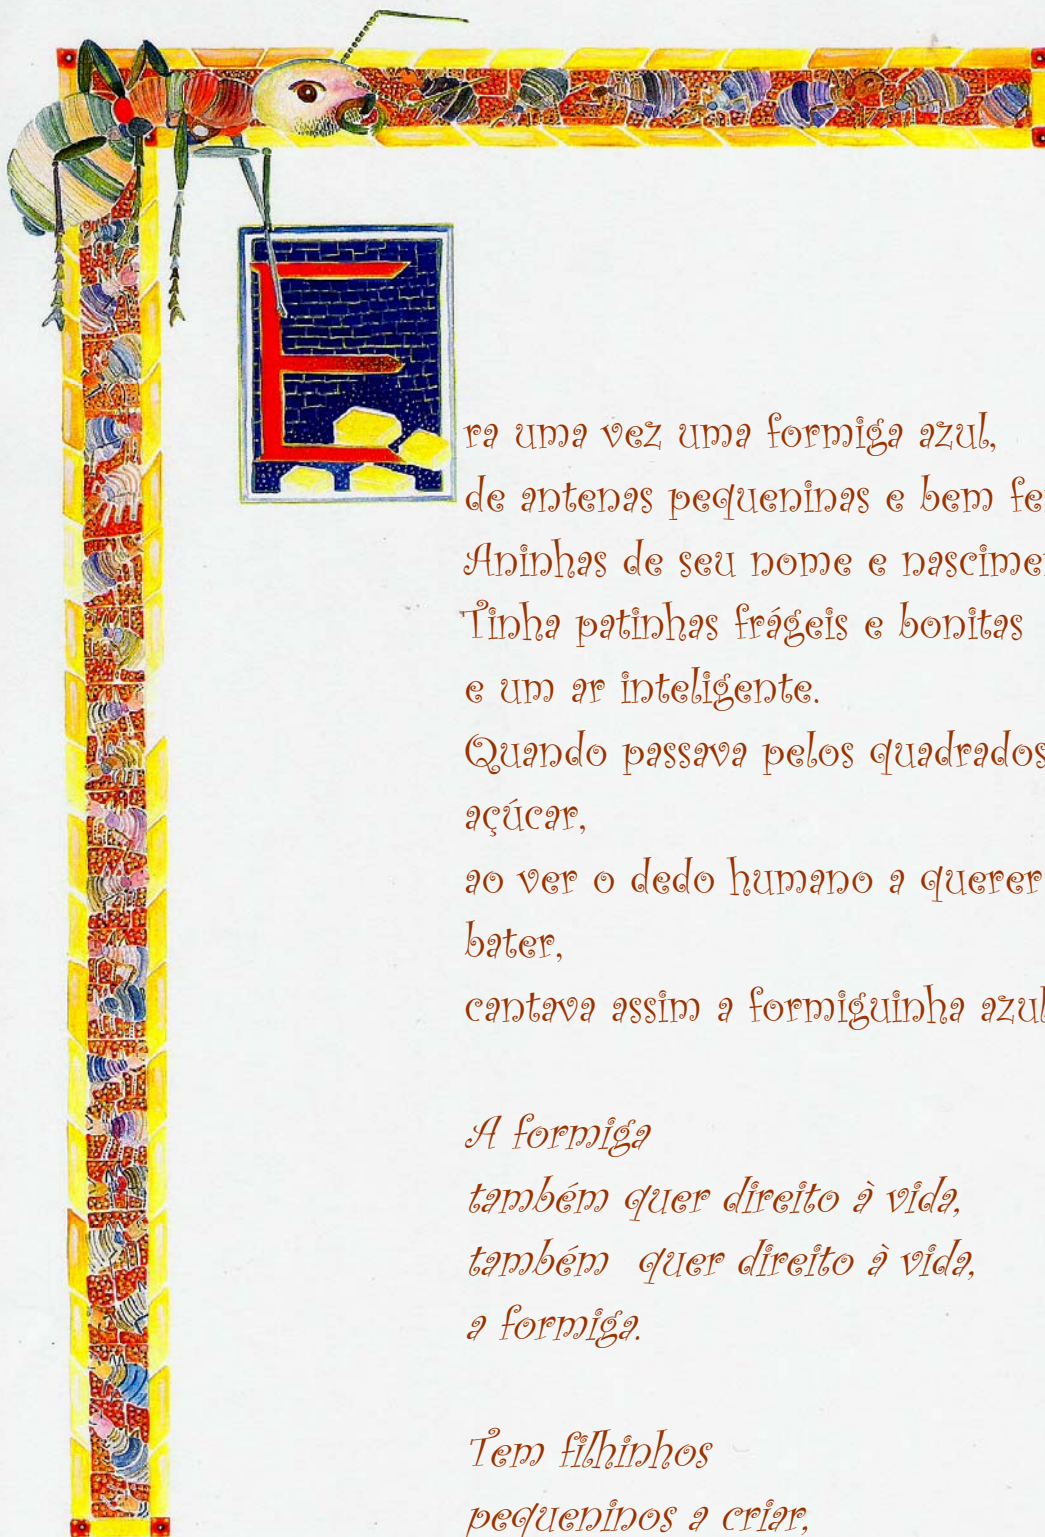 Era uma vez uma formiga azul,
de antenas pequeninas e bem
Aninhas de seu nome e
Tinha patinhas frágeis e bonitas
e um ar inteligente.
Quando passava pelos quadrados
açúcar,
ao ver o dedo humano a querer
bater,
cantava assim a formiguinha azul
A formiga
também quer direito à vida,
também quer direito à vida,
a formiga.
Tem filhinhos
pequeninos a criar,